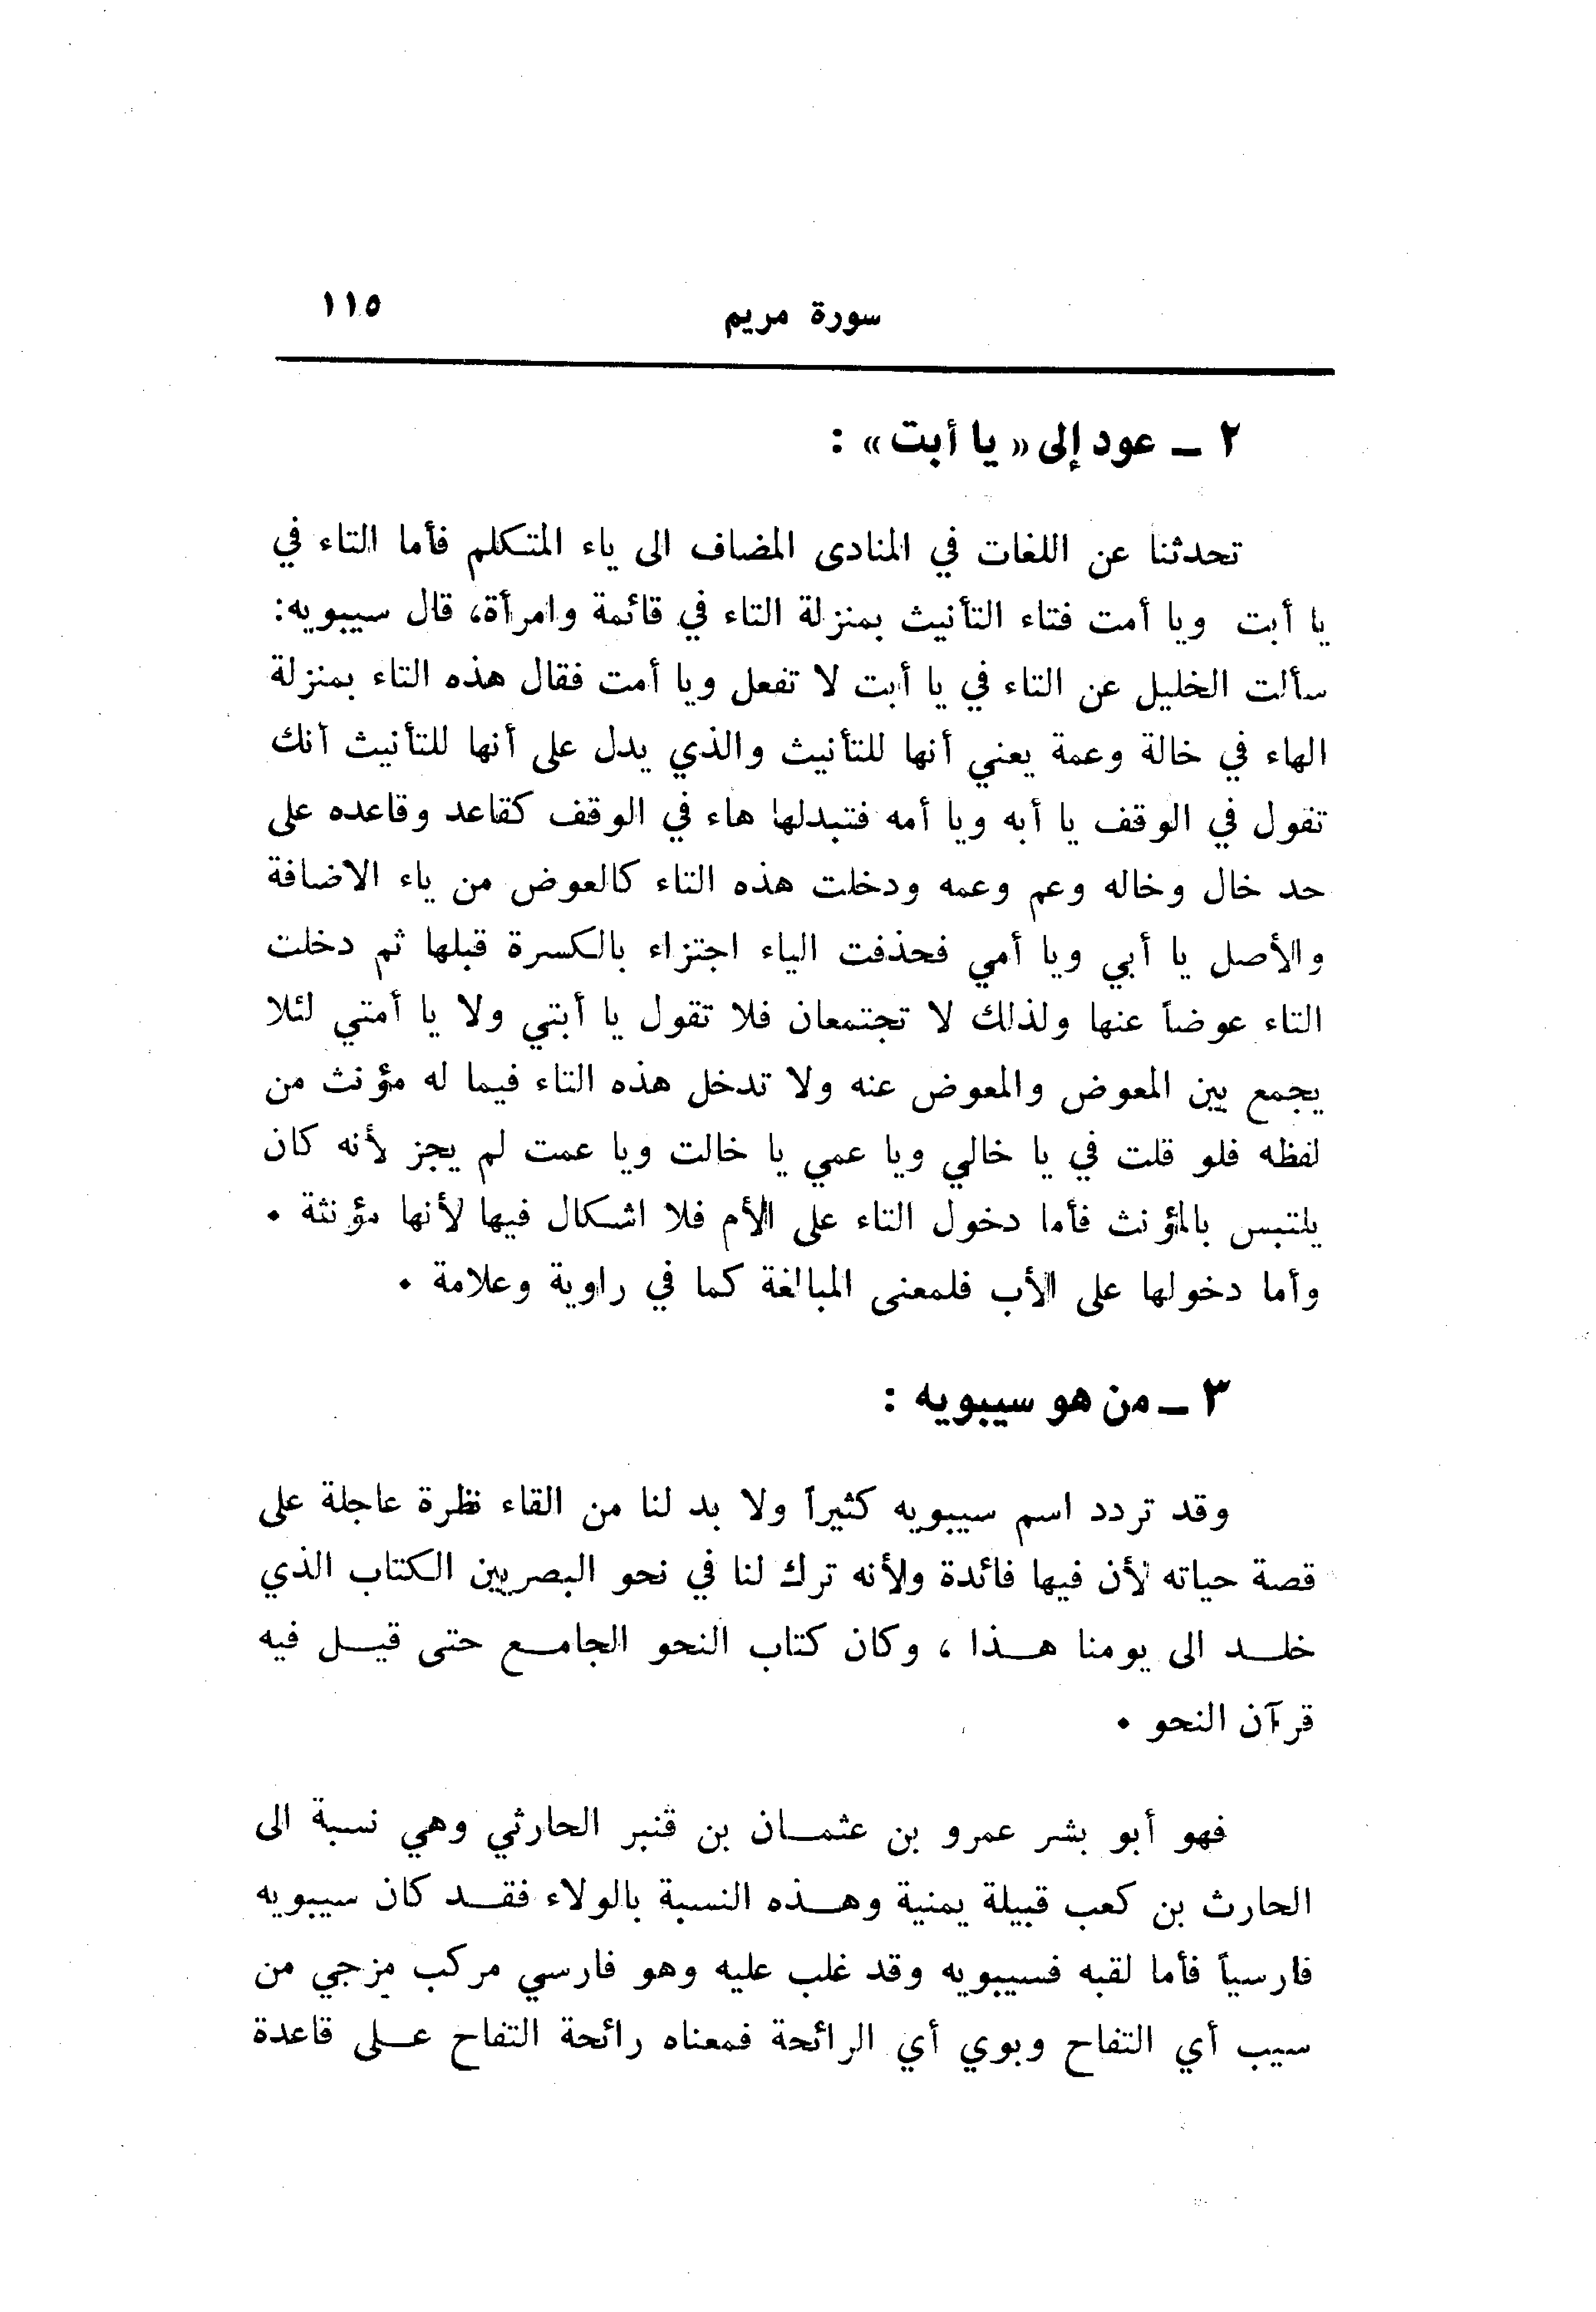 سورة مريم ١١٥
٢ ـ عود إلى « يا أبت » :
تحدثنا عن اللغات في المنادى المضاف الى ياء المتكلم فأما التاء في
يا أبت ويا أمت فتاء التأنيث بمنزلة التاء في قائمة وامرأة، قال سيبويه:
سألت الخليل عن التاء في يا أبت لا تفعل ويا أمت فقال هذه التاء بمنزلة
الهاء في خالة وعمة يعني أنها للتأنيث والذي يدل على أنها للتأنيث أنك
تقول في الوقف يا أبه ويا أمه فتبدلها هاء في الوقف كقاعد وقاعده على
حد خال وخاله وعم وعمه ودخلت هذه التاء كالعوض من ياء الاضافة
والأصل يا أبي ويا أمي فحذفت الياء اجتزاء بالكسرة قبلها ثم دخلت
التاء عوضاً عنها ولذلك لا تجتمعان فلا تقول يا أبتي ولا يا أمتي لئلا
يجمع بين المعوض والمعوض عنه ولا تدخل هذه التاء فيما له مؤنث من
لفظه فلو قلت في يا خالي ويا عمي يا خالت ويا عمت لم يجز لأنه كان
يلتبس بالمؤنث فأما دخول التاء على الأم فلا اشكال فيها لأنها مؤنثة .
وأما دخولها على الأب فلمعنى المبالغة كما في راوية وعلامة .
٣ ـ من هو سيبويه :
وقد تردد اسم سيبويه كثيراً ولا بد لنا من القاء نظرة عاجلة على
قصة حياته لأن فيها فائدة ولأنه ترك لنا في نحو البصريين الكتاب الذي
خلـد الى يومنا هـذا ، وكان كتاب النحو الجامـع حتى قيـل فيه
قرآن النحو .
فهو أبو بشر عمرو بن عثمـان بن قنبر الحارثي وهي نسبة الى
الحارث بن كعب قبيلة يمنية وهـذه النسبة بالولاء فقـد كان سيبويه
فارسياً فأما لقبه فسيبويه وقد غلب عليه وهو فارسي مركب مزجي من
سيب أي التفاح وبوي أي الرائحة فمعناه رائحة التفاح عـلى قاعدة